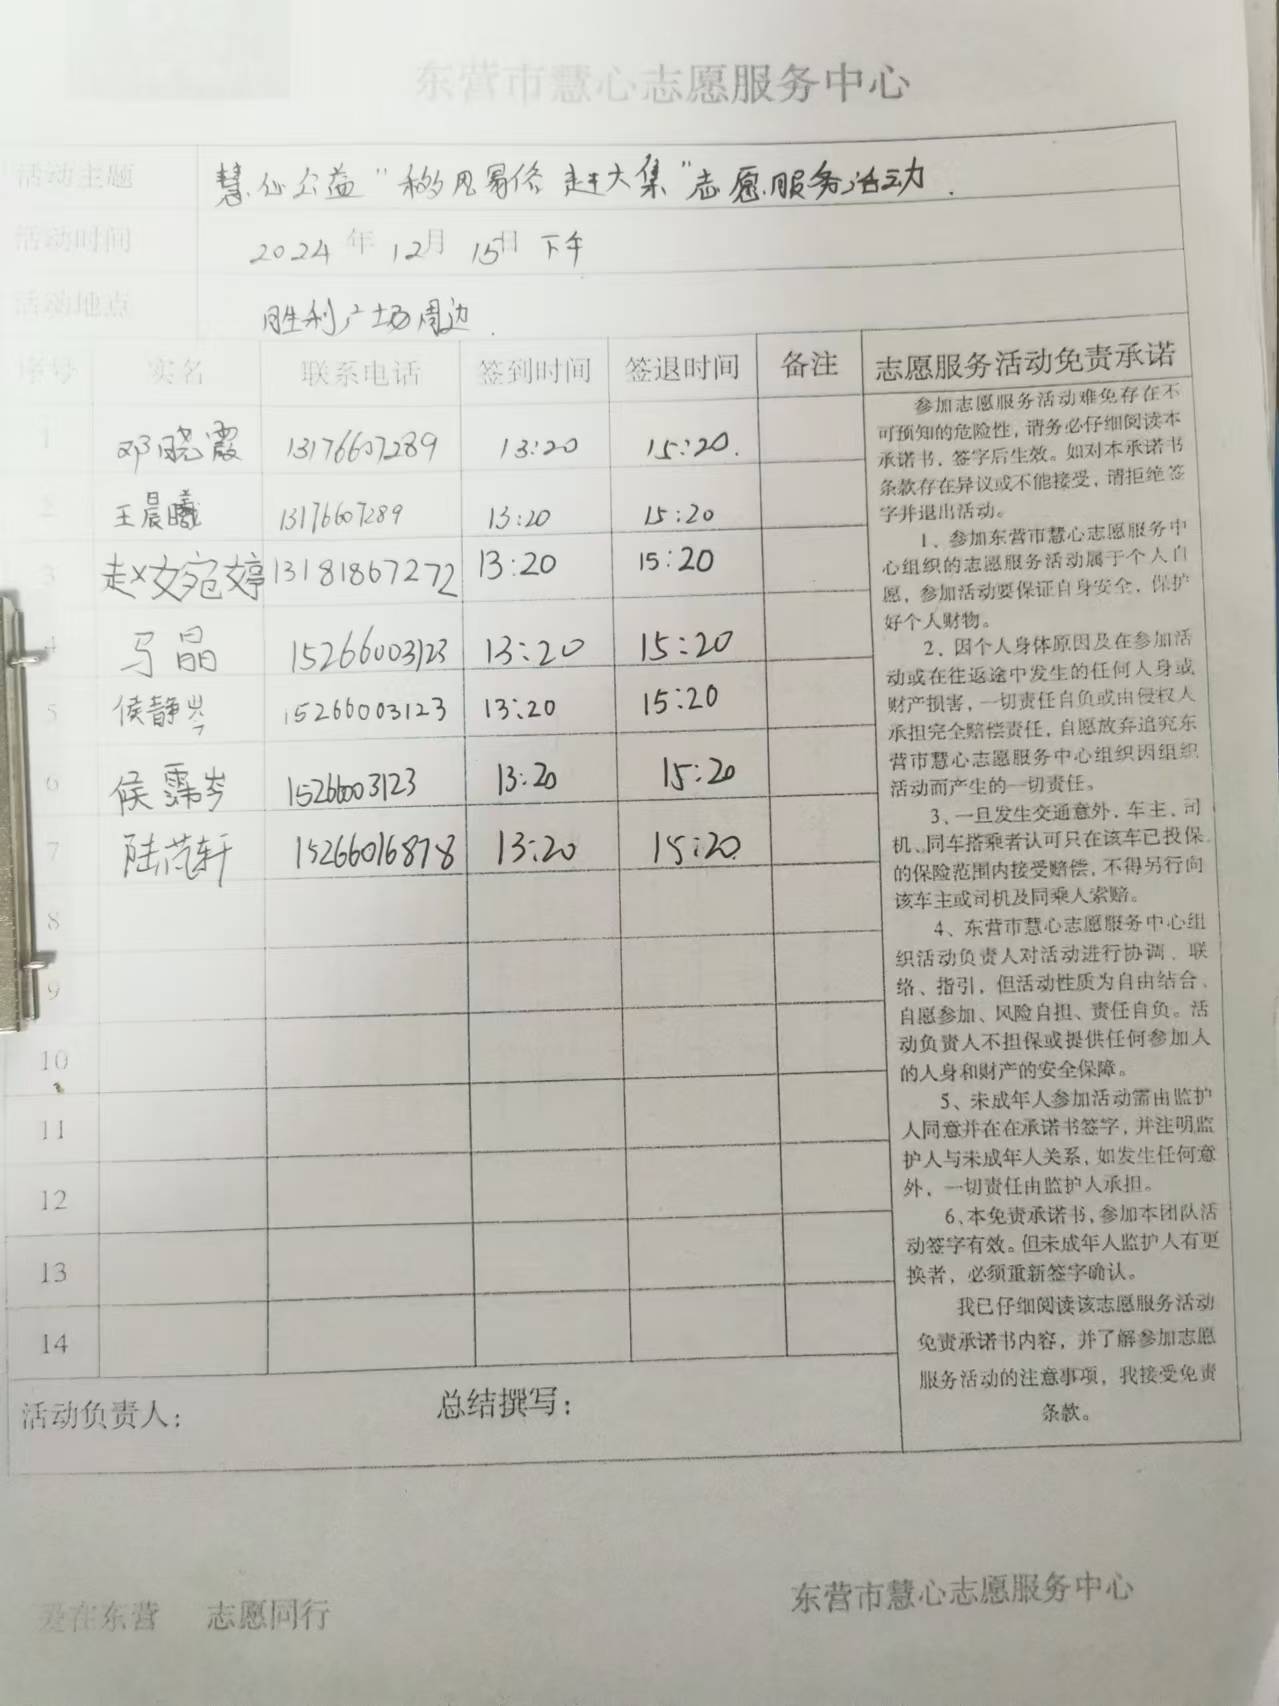 东营市慧心志愿服务中心
活动主题 慧心公益“移风易俗 赶大集”志愿服务活动.
活动时间 2024年12月15日 下午
活动地点 胜利广场周边.
序号 实名 联系电话 签到时间 签退时间 备注 志愿服务活动免责承诺
1 邓晓霞 13176607289 13:20 15:20.
2 王晨曦 13176607289 13:20 15:20
3 赵文宛婷 13181867272 13:20 15:20
4 马晶 15266003123 13:20 15:20
5 侯静岑 15266003123 13:20 15:20
6 侯霈岑 15266003123 13:20 15:20
7 陆芯轩 15266016878 13:20 15:20.
8
9
10
11
12
13
14
参加志愿服务活动难免存在不
可预知的危险性，请务必仔细阅读本
承诺书，签字后生效。如对本承诺书
条款存在异议或不能接受，请拒绝签
字并退出活动。
1、参加东营市慧心志愿服务中
心组织的志愿服务活动属于个人自
愿，参加活动要保证自身安全，保护
好个人财物。
2、因个人身体原因及在参加活
动或在往返途中发生的任何人身或
财产损害，一切责任自负或由侵权人
承担完全赔偿责任，自愿放弃追究东
营市慧心志愿服务中心组织因组织
活动而产生的一切责任。
3、一旦发生交通意外，车主、司
机、同车搭乘者认可只在该车已投保
的保险范围内接受赔偿，不得另行向
该车主或司机及同乘人索赔。
4、东营市慧心志愿服务中心组
织活动负责人对活动进行协调、联
络、指引，但活动性质为自由结合、
自愿参加、风险自担、责任自负。活
动负责人不担保或提供任何参加人
的人身和财产的安全保障。
5、未成年人参加活动需由监护
人同意并在在承诺书签字，并注明监
护人与未成年人关系，如发生任何意
外，一切责任由监护人承担。
6、本免责承诺书，参加本团队活
动签字有效。但未成年人监护人有更
换者，必须重新签字确认。
我已仔细阅读该志愿服务活动
免责承诺书内容，并了解参加志愿
服务活动的注意事项，我接受免责
条款。
活动负责人： 总结撰写：
爱在东营 志愿同行 东营市慧心志愿服务中心